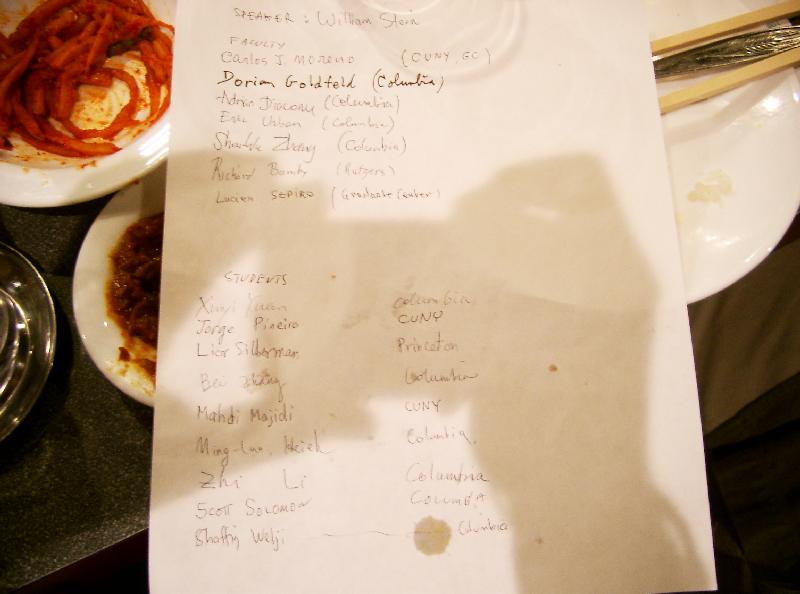 SPEAKER : William Stein
FACULTY
Carlos J. MORENO (CUNY, GC)
Dorian Goldfeld (Columbia)
Adrian Diaconu (Columbia)
Eric Urban (Columbia)
Zhang (Columbia)
Richard Bumby (Rutgers)
Lucien SZPIRO (Graduate Center)
STUDENTS
Xinyi Yuan Columbia
Jorge Pineiro CUNY
Lior Silberman Princeton
Bei Zhang Columbia
Mahdi Majidi CUNY
Ming-Lun Hsieh Columbia.
Zhi Li Columbia
SCOTT SOLOMON COLUMBIA
Shaffiq Welji Columbia